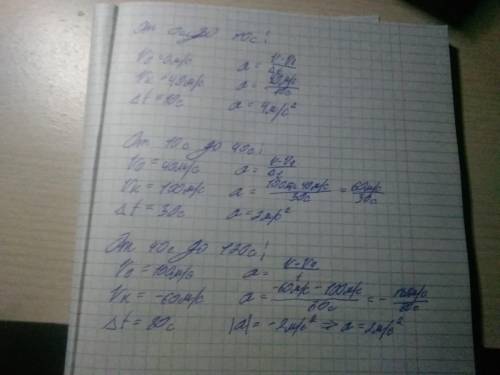 От 0с до 10с:
V₀ = 0м/с a = V-V₀/Δt
Vк = 40м/с a = 40м/с/10с
Δt = 10с a = 4м/с²
От 10с до 40с:
V₀ = 40м/с a = V-V₀/Δt
Vк = 100м/с a = 100м/с-40м/с/30с = 60м/с/30с
Δt = 30с a = 2м/с²
От 40с до 120с:
V₀ = 100м/с a = V-V₀/t
Vк = -60м/с a = -60м/с - 100м/с/80с = - 160м/с/80с
Δt = 80с |a| = -2м/с² => a = 2м/с²